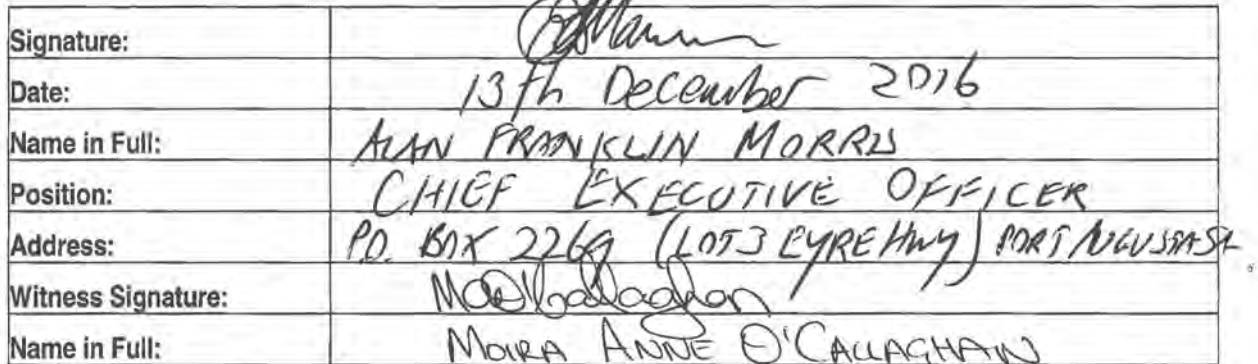 Signature:
Date: 13th December 2016
Name in Full: ALAN FRANKLIN MORRIS
Position: CHIEF EXECUTIVE OFFICER
Address: P.O. BOX 2269 (LOT 3 EYRE HWY) PORT AUGUSTA SA
Witness Signature: MAO'Callaghan
Name in Full: MOIRA ANNE O'CALLAGHAN